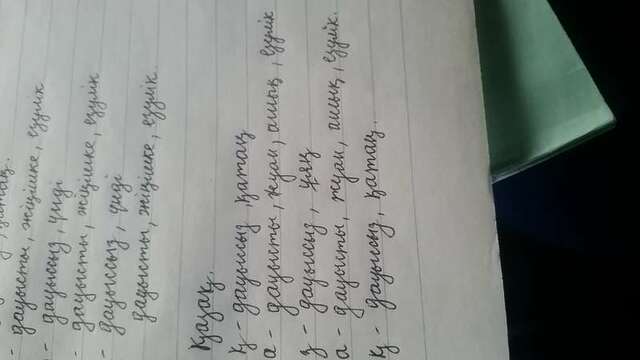 қатаң.
дауысты, жіңішке, езулік
- дауыссыз, үнді
- дауысты, жіңішке, езулік
- дауыссыз, үнді
дауысты, жіңішке, езулік.
Қазақ.
қ - дауыссыз қатаң
а - дауысты, жуан, ашық, езулік
з - дауыссыз, ұяң
а - дауысты, жуан, ашық, езулік.
қ - дауыссыз, қатаң.